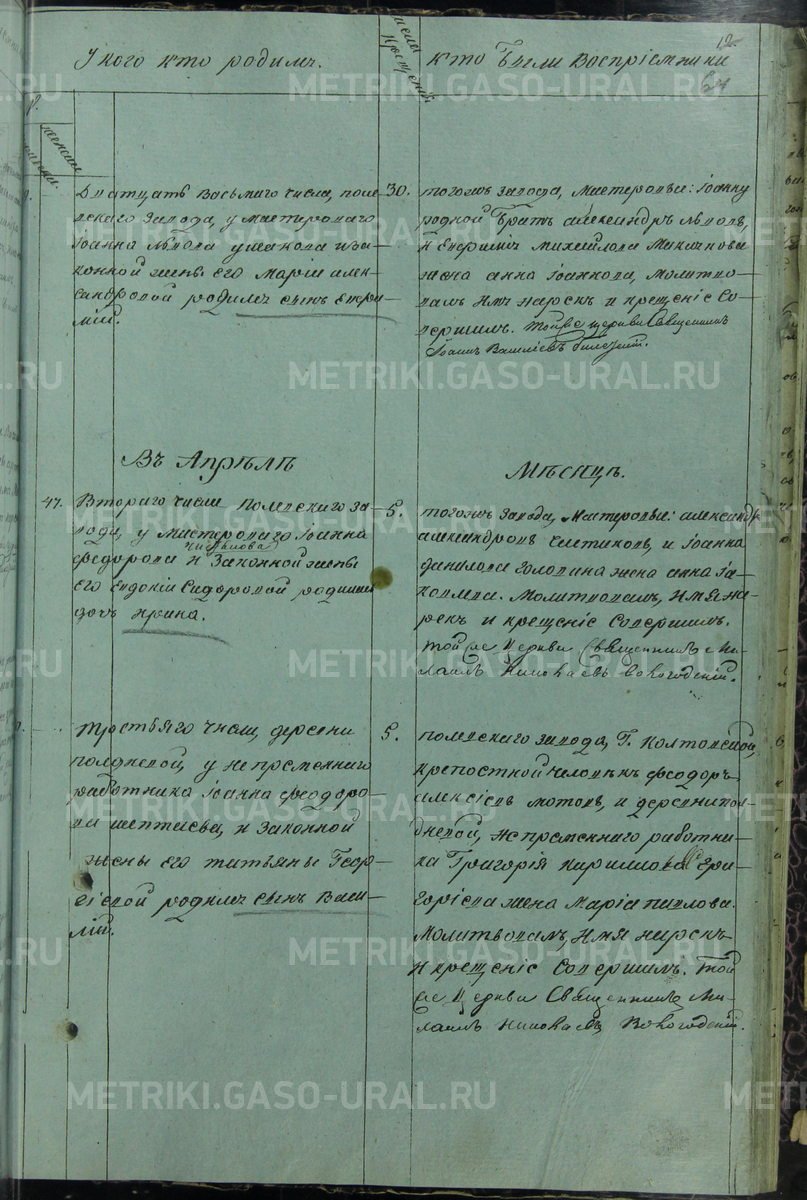 У кого кто родилъ.
числа крещенія
кто Были Воспріемники
12
женска
Дватцать Восьмаго числа, поле-
вскаго завода, у мастероваго
Іоанна Львова ушакова и за-
конной жены его Маріи алек-
сандровой родилъ сынъ Евѳи-
мій.
30.
тогожъ завода, мастеровые: Іоанну
родной братъ александръ Львовъ,
и Евѳимія михайлова
жена анна Іоаннова, молитво-
валъ Имя нарекъ и крещеніе Со-
вершилъ. тойже церкви Священникъ
Іоаннъ Василіевъ
Въ Апрѣлѣ
Мѣсяцѣ.
47.
Втораго числа полевскаго за-
вода, у мастероваго Іоанна
федорова и Законной жены
его евдокіи Сидоровой родилась
дочь Ирина.
5.
тогожъ завода, мастеровые: александръ
александровъ и Іоанна
данилова Голодина жена анна Іа-
ковлева. Молитвовалъ, Имя на-
рекъ и крещеніе Совершилъ.
той же Церкви Священникъ Ми-
хаилъ Николаевъ Вологодскій.
третьяго числа, деревни
полдневой, у непременнаго
работника Іоанна феодоро-
ва шептаева, и Законной
жены его татьяны Геор-
гіевой родилъ сынъ Васи-
лій.
5.
полевскаго завода, Г. Колтовской,
крепостной человѣкъ феодоръ
алексіевъ мотовъ, и деревни пол-
дневой, непременнаго работни-
ка Григорія кирилова Гри-
горіева жена Марія павлова.
Молитвовалъ, Имя нарекъ
и крещеніе Совершилъ. Той
же Церкви Священникъ Ми-
хаилъ Николаевъ Вологодскій.
METRIKI.GASO-URAL.RU